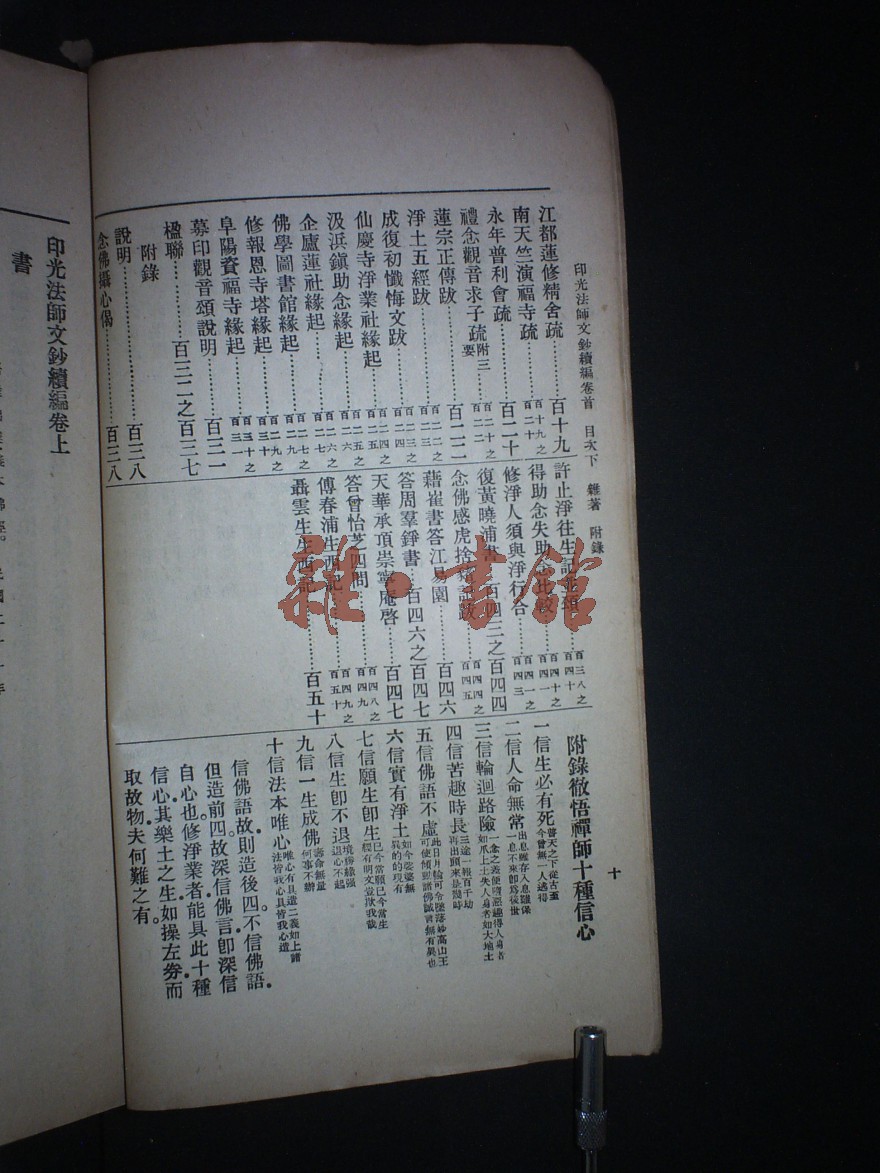 印光法師文鈔續編卷首 目次下 雜著 附錄
十
江都蓮修精舍疏 百十九
南天竺演福寺疏 百十九之百二十
永年普利會疏 百二十
禮念觀音求子疏附三要 百二十之百二二
蓮宗正傳跋 百二二
淨土五經跋 百二二之百二三
成復初懺悔文跋 百二三之百二四
仙慶寺淨業社緣起 百二四之百二五
汲浜鎮助念緣起 百二五之百二六
企廬蓮社緣起 百二六之百二七
佛學圖書館緣起 百二七之百二九
修報恩寺塔緣起 百二九之百三十
阜陽資福寺緣起 百三十之百三一
募印觀音頌說明 百三一
楹聯 百三二之百三七
附錄
說明 百三八
念佛攝心偈 百三八
許止淨往生記並頌 百三八之百四十
得助念失助念比較 百四十之百四一
修淨人須與淨行合 百四一之百四三
復黃曉浦書 百四三之百四四
念佛感虎捨豬記跋 百四四之百四五
藉崔書答江易園 百四六
答周羣錚書 百四六之百四七
天華承頂崇寧庵啓 百四七
答曾怡芝四問 百四八之百四九
傅春浦生西記 百四九之百五十
聶雲生生西記 百五十
附錄徹悟禪師十種信心
一信生必有死 普天之下從古盡今曾無一人逃得
二信人命無常 出息雖存入息難保一息不來卽爲後世
三信輪迴路險 一念之差便墮惡趣得人身者如爪上土失人身者如大地土
四信苦趣時長 三途一報百千劫再出頭來是幾時
五信佛語不虛 此日月輪可令墮落妙高山王可使傾動諸佛誠言無有異也
六信實有淨土 如今娑婆無異的的現有
七信願生卽生 已今當願已今當生經有明文豈欺我哉
八信生卽不退 境勝緣强退心不起
九信一生成佛 壽命無量何事不辦
十信法本唯心 唯心有具造二義如上諸法皆我心具皆我心造
信佛語故則造後四不信佛語。
但造前四故深信佛言卽深信
自心也。修淨業者能具此十種
信心。其樂土之生如操左券而
取故物夫何難之有。
印光法師文鈔續編卷上
書
雜·書館